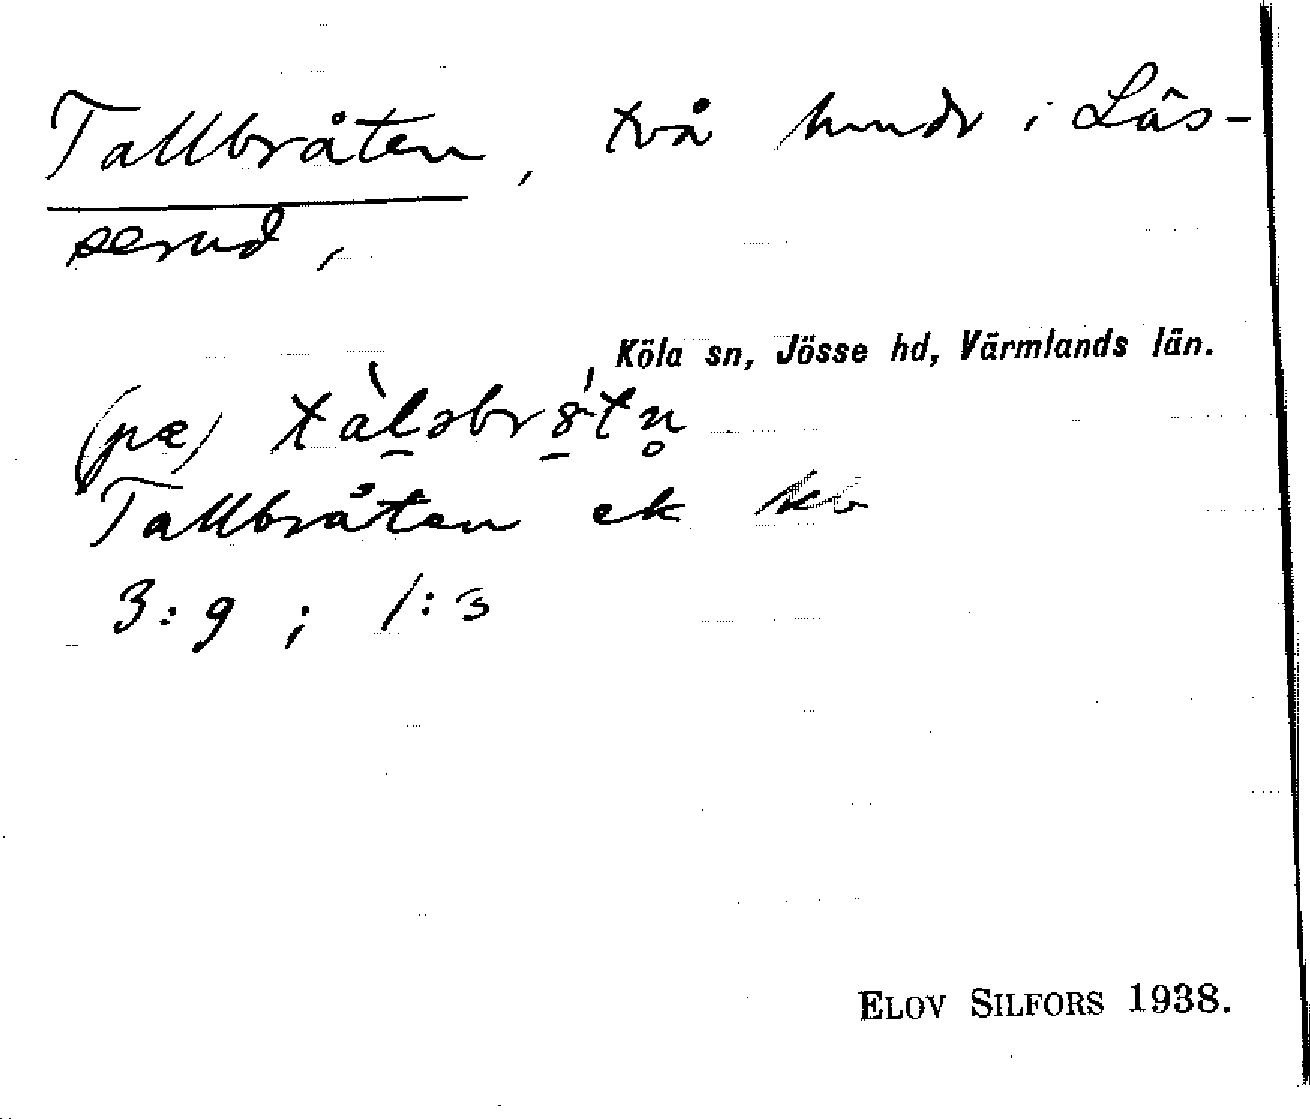 Tallbråten, två hmdr i Lås-
serud,
Köla sn, Jösse hd, Värmlands län.
(pæ)
Tallbråten ek kb
3:9 ; 1:3
ELOV SILFORS 1938.